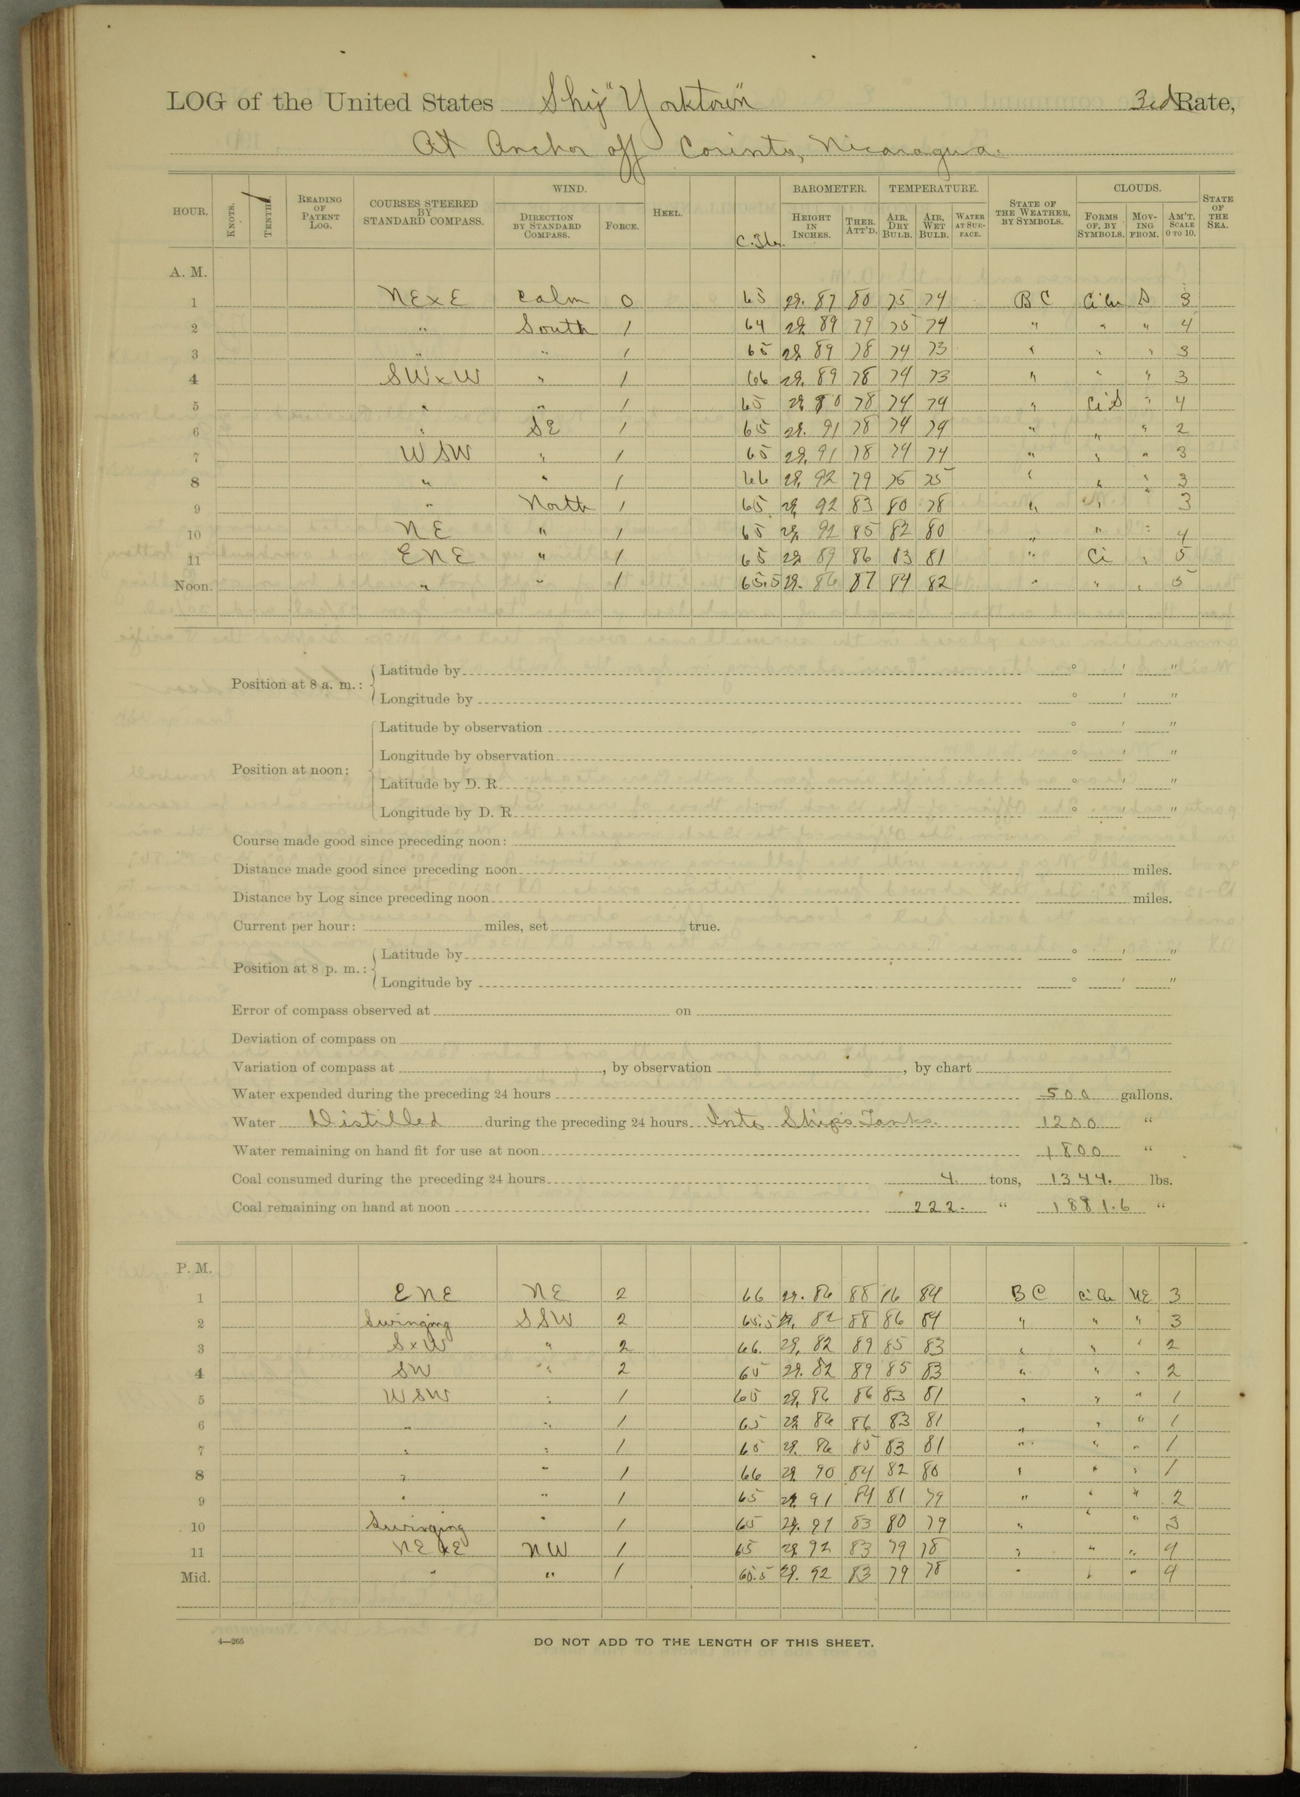 LOG of the United States Ship "Yorktown" 3rd Rate,
At Anchor off Corinto, Nicaragua.
HOUR. KNOTS. TENTHS. READING OF PATENT LOG. COURSES STEERED BY STANDARD COMPASS. WIND. DIRECTION BY STANDARD COMPASS. FORCE. HEEL. BAROMETER. HEIGHT IN INCHES. THER. ATT'D. TEMPERATURE. AIR, DRY BULB. AIR, WET BULB. WATER AT SURFACE. STATE OF THE WEATHER, BY SYMBOLS. CLOUDS. FORMS OF, BY SYMBOLS. MOVING FROM. AM'T. SCALE 0 TO 10. STATE OF THE SEA.
A. M.
1 NExE Calm 0 65 29. 87 80 75 74 BC Ci Cu S 3
2 " South 1 64 29 89 79 75 74 " " " 4
3 " " 1 65 29 89 78 74 73 " " " 3
4 SWxW " 1 66 29. 89 78 74 73 " " " 3
5 " " 1 65 29 90 78 74 74 " Ci S " 4
6 " SE 1 65 29. 91 78 74 74 " " " 2
7 WSW " 1 65 29. 91 78 74 74 " " " 3
8 " " 1 66 29. 92 79 75 75 " " " 3
9 " North 1 65 29. 92 83 80 78 " " " 3
10 NE " 1 65 29. 92 85 82 80 " " " 4
11 ENE " 1 65 29 89 86 83 81 " Ci " 5
Noon. " " 1 65.5 29. 86 87 84 82 " " " 5
Position at 8 a. m.: Latitude by ° ' "
Longitude by ° ' "
Position at noon: Latitude by observation ° ' "
Longitude by observation ° ' "
Latitude by D. R. ° ' "
Longitude by D. R. ° ' "
Course made good since preceding noon:
Distance made good since preceding noon miles.
Distance by Log since preceding noon miles.
Current per hour: miles, set true.
Position at 8 p. m.: Latitude by ° ' "
Longitude by ° ' "
Error of compass observed at on
Deviation of compass on
Variation of compass at , by observation , by chart
Water expended during the preceding 24 hours 500 gallons.
Water Distilled during the preceding 24 hours Into Ship's Tanks. 1200 "
Water remaining on hand fit for use at noon 1800 "
Coal consumed during the preceding 24 hours 4 tons, 1344. lbs.
Coal remaining on hand at noon 222. " 1881.6 "
P. M.
1 ENE NE 2 66 29. 86 88 86 84 BC Ci Cu NE 3
2 Swinging SSW 2 65.5 29. 82 88 86 84 " " " 3
3 SxW " 2 66. 29. 82 89 85 83 " " " 2
4 SW " 2 65 29. 82 89 85 83 " " " 2
5 WSW " 1 65 29. 86 86 83 81 " " " 1
6 " " 1 65 29 86 86 83 81 " " " 1
7 " " 1 65 29. 86 85 83 81 " " " 1
8 " " 1 66 29. 90 84 82 80 " " " 1
9 " " 1 65 29. 91 84 81 79 " " " 2
10 Swinging " 1 65 29. 91 83 80 79 " " " 3
11 NExE NW 1 65 29. 92 83 79 78 " " " 4
Mid. " " 1 65.5 29. 92 83 79 78 " " " 4
4—265
DO NOT ADD TO THE LENGTH OF THIS SHEET.